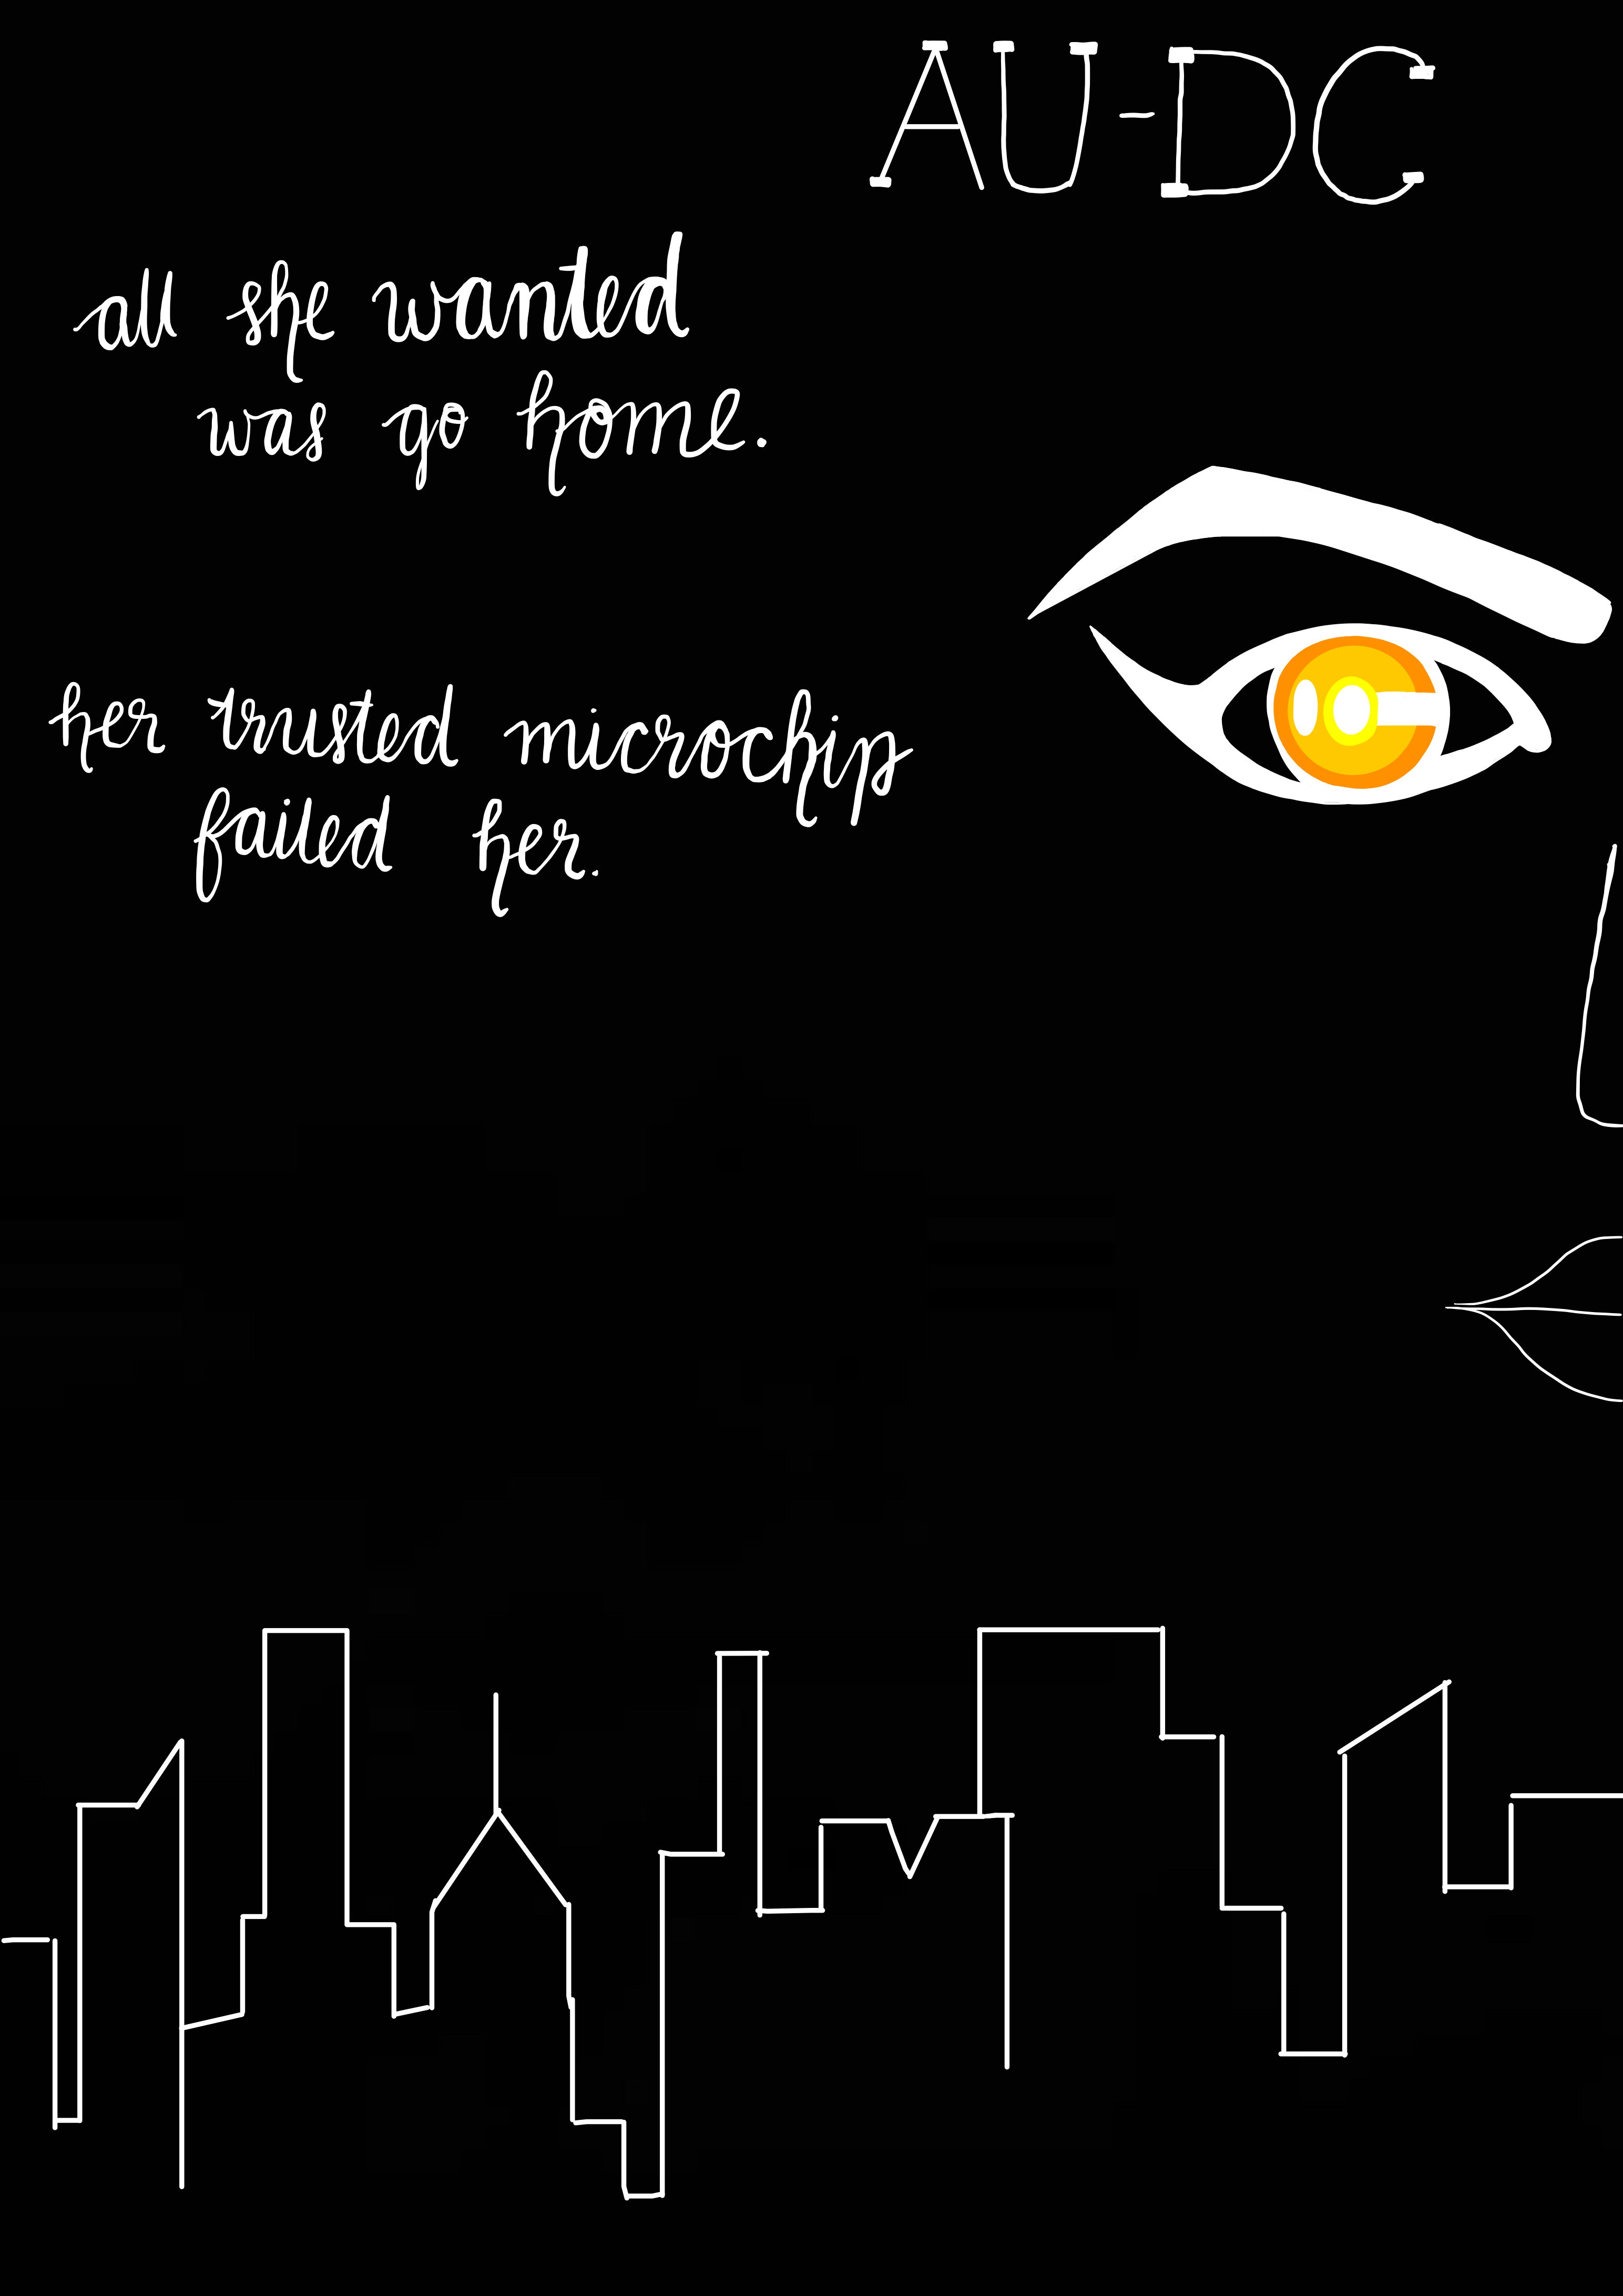 AU-DC
all she wanted
was go home.
her trusted microchip
failed her.